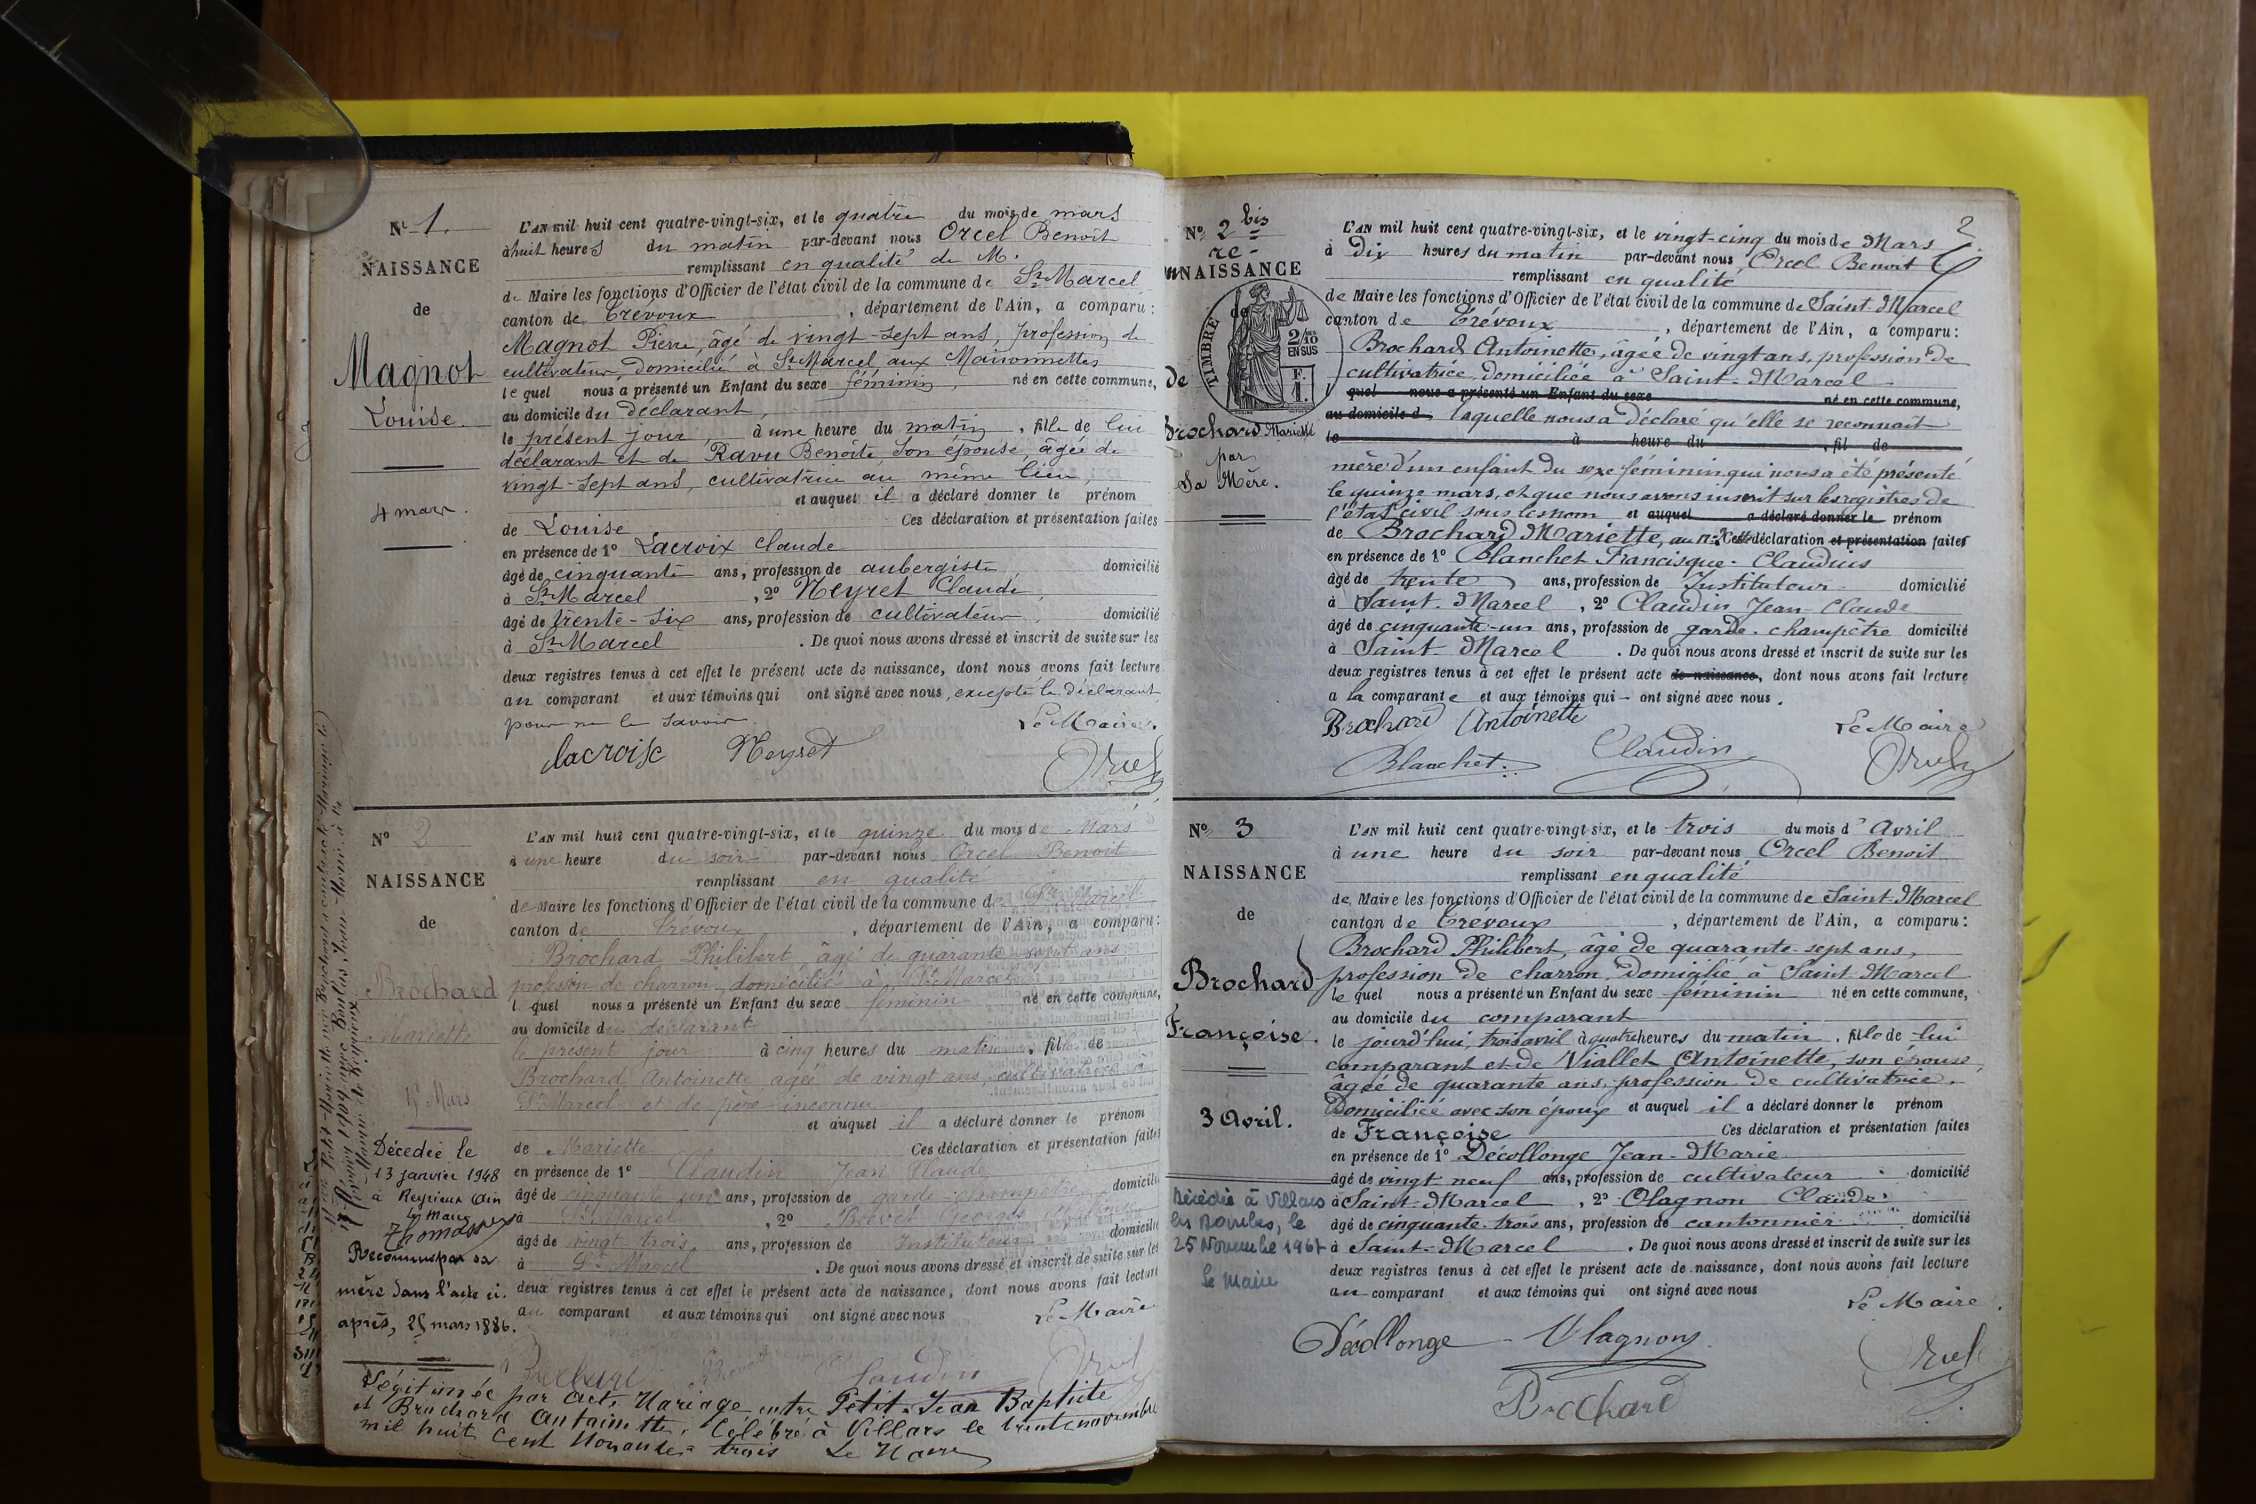 Nº 1.
NAISSANCE
de
Magnot
Louise.
4 mars.
L'AN mil huit cent quatre-vingt-six, et le quatre du mois de mars
à huit heures du matin par-devant nous Orcel Benoît
remplissant en qualité de M.
de Maire les fonctions d'Officier de l'état civil de la commune de St Marcel
canton de Trévoux, département de l'Ain, a comparu:
Magnot Pierre, âgé de vingt-sept ans, profession de
cultivateur domicilié à St Marcel aux Maisonnettes
lequel nous a présenté un Enfant du sexe féminin, né en cette commune,
au domicile du déclarant,
le présent jour, à une heure du matin, fille de lui
déclarant et de Ravu Benoîte son épouse, âgée de
vingt-sept ans, cultivatrice au même lieu,
et auquel il a déclaré donner le prénom
de Louise Ces déclaration et présentation faites
en présence de 1º Lacroix Claude
âgé de cinquante ans, profession de aubergiste, domicilié
à St Marcel, 2º Neyret Claude,
âgé de trente-six ans, profession de cultivateur, domicilié
à St Marcel. De quoi nous avons dressé et inscrit de suite sur les
deux registres tenus à cet effet le présent acte de naissance, dont nous avons fait lecture
au comparant et aux témoins qui ont signé avec nous, excepté le déclarant
pour ne le savoir. Le Maire.
Lacroix Neyret Orcel
Nº 2
NAISSANCE
de
Brochard
Mariette
15 Mars
Décédée le
13 janvier 1948
à Reyrieux Ain
Le Maire
Thomas
Reconnue par sa
mère dans l'acte ci-
après, 25 mars 1886.
L'AN mil huit cent quatre-vingt-six, et le quinze du mois de Mars
à une heure du soir par-devant nous Orcel Benoit
remplissant en qualité
de Maire les fonctions d'Officier de l'état civil de la commune de St Marcel
canton de Trévoux, département de l'Ain, a comparu:
Brochard Philibert, âgé de quarante sept ans
profession de charron, domicilié à St Marcel
lequel nous a présenté un Enfant du sexe féminin né en cette commune,
au domicile du déclarant
le présent jour à cinq heures du matin, fille de
Brochard Antoinette âgée de vingt ans, cultivatrice à
St Marcel et de père inconnu
et auquel il a déclaré donner le prénom
de Mariette Ces déclaration et présentation faites
en présence de 1º Claudin Jean Claude
âgé de cinquante un ans, profession de garde champêtre domicilié
à St Marcel, 2º Georges
âgé de vingt trois ans, profession de Instituteur domicilié
à St Marcel. De quoi nous avons dressé et inscrit de suite sur les
deux registres tenus à cet effet le présent acte de naissance, dont nous avons fait lecture
au comparant et aux témoins qui ont signé avec nous Le Maire
Brochard Claudin Orcel
Légitimée par acte Mariage entre Petit Jean Baptiste
et Brochard Antoinette, Célébré à Villars le trente novembre
mil huit Cent Nonante-trois Le Maire
2
Nº 2 bis
re-
NAISSANCE
de
TIMBRE
2/10 EN SUS
F. 1.
de
Brochard Mariette
par
Sa Mère.
L'AN mil huit cent quatre-vingt-six, et le vingt-cinq du mois de Mars
à Dix heures du matin par-devant nous Orcel Benoit
remplissant en qualité
de Maire les fonctions d'Officier de l'état civil de la commune de Saint-Marcel
canton de Trévoux, département de l'Ain, a comparu:
Brochard Antoinette, âgée de vingt ans, profession de
cultivatrice domiciliée à Saint-Marcel
l quel nous a présenté un Enfant du sexe né en cette commune,
au domicile d laquelle nous a déclaré qu'elle se reconnaît
le à heure du, fil de
mère d'un enfant du sexe féminin qui nous a été présenté
le quinze mars, et que nous avons inscrit sur les registres de
l'état civil sous les nom et auquel a déclaré donner le prénom
de Brochard Mariette, au nº 2 Cette déclaration et présentation faites
en présence de 1º Blanchet Francisque-Claudius
âgé de trente ans, profession de Instituteur domicilié
à Saint-Marcel, 2º Claudin Jean-Claude
âgé de cinquante-un ans, profession de garde-champêtre domicilié
à Saint Marcel. De quoi nous avons dressé et inscrit de suite sur les
deux registres tenus à cet effet le présent acte de naissance, dont nous avons fait lecture
a la comparante et aux témoins qui ont signé avec nous.
Brochard Antoinette Le Maire
Blanchet Claudin Orcel
Nº 3
NAISSANCE
de
Brochard
Françoise.
3 Avril.
Décédée à Villars
les Dombes, le
25 Novembre 1967
Le Maire
L'AN mil huit cent quatre-vingt-six, et le trois du mois d'Avril
à une heure du soir par-devant nous Orcel Benoit
remplissant en qualité
de Maire les fonctions d'Officier de l'état civil de la commune de Saint-Marcel
canton de Trévoux, département de l'Ain, a comparu:
Brochard Philibert, âgé de quarante-sept ans,
profession de charron, domicilié à Saint-Marcel
lequel nous a présenté un Enfant du sexe féminin né en cette commune,
au domicile du comparant
le jourd'hui, trois avril à quatre heures du matin, fille de lui
comparant et de Viallet Antoinette, son épouse,
âgée de quarante ans, profession de cultivatrice.
Domiciliée avec son époux et auquel il a déclaré donner le prénom
de Françoise Ces déclaration et présentation faites
en présence de 1º Décollonge Jean-Marie
âgé de vingt neuf ans, profession de cultivateur domicilié
à Saint-Marcel, 2º Olagnon Claude
âgé de cinquante-trois ans, profession de cantonnier domicilié
à Saint-Marcel. De quoi nous avons dressé et inscrit de suite sur les
deux registres tenus à cet effet le présent acte de naissance, dont nous avons fait lecture
au comparant et aux témoins qui ont signé avec nous
Le Maire.
Décollonge Olagnon Orcel
Brochard